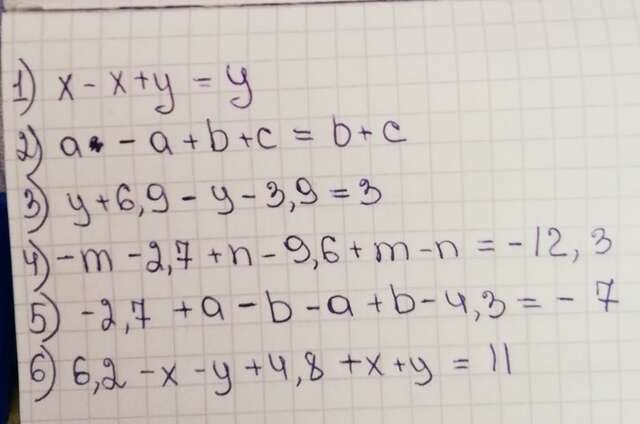 1) x - x + y = y
2) a - a + b + c = b + c
3) y + 6,9 - y - 3,9 = 3
4) -m - 2,7 + n - 9,6 + m - n = -12,3
5) -2,7 + a - b - a + b - 4,3 = -7
6) 6,2 - x - y + 4,8 + x + y = 11